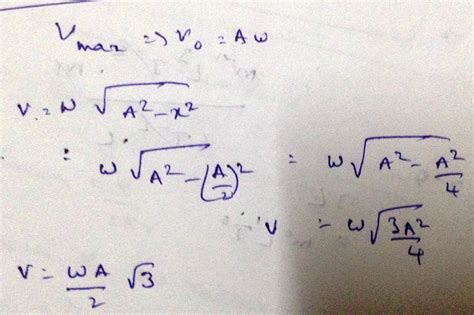 Vmax => v₀ = Aω
v = N √(A² − x²)
: ω √(A² − (A/2)²) = ω √(A² − A²/4)
∴ v = ω √(3A²/4)
v = ωA/2 √3